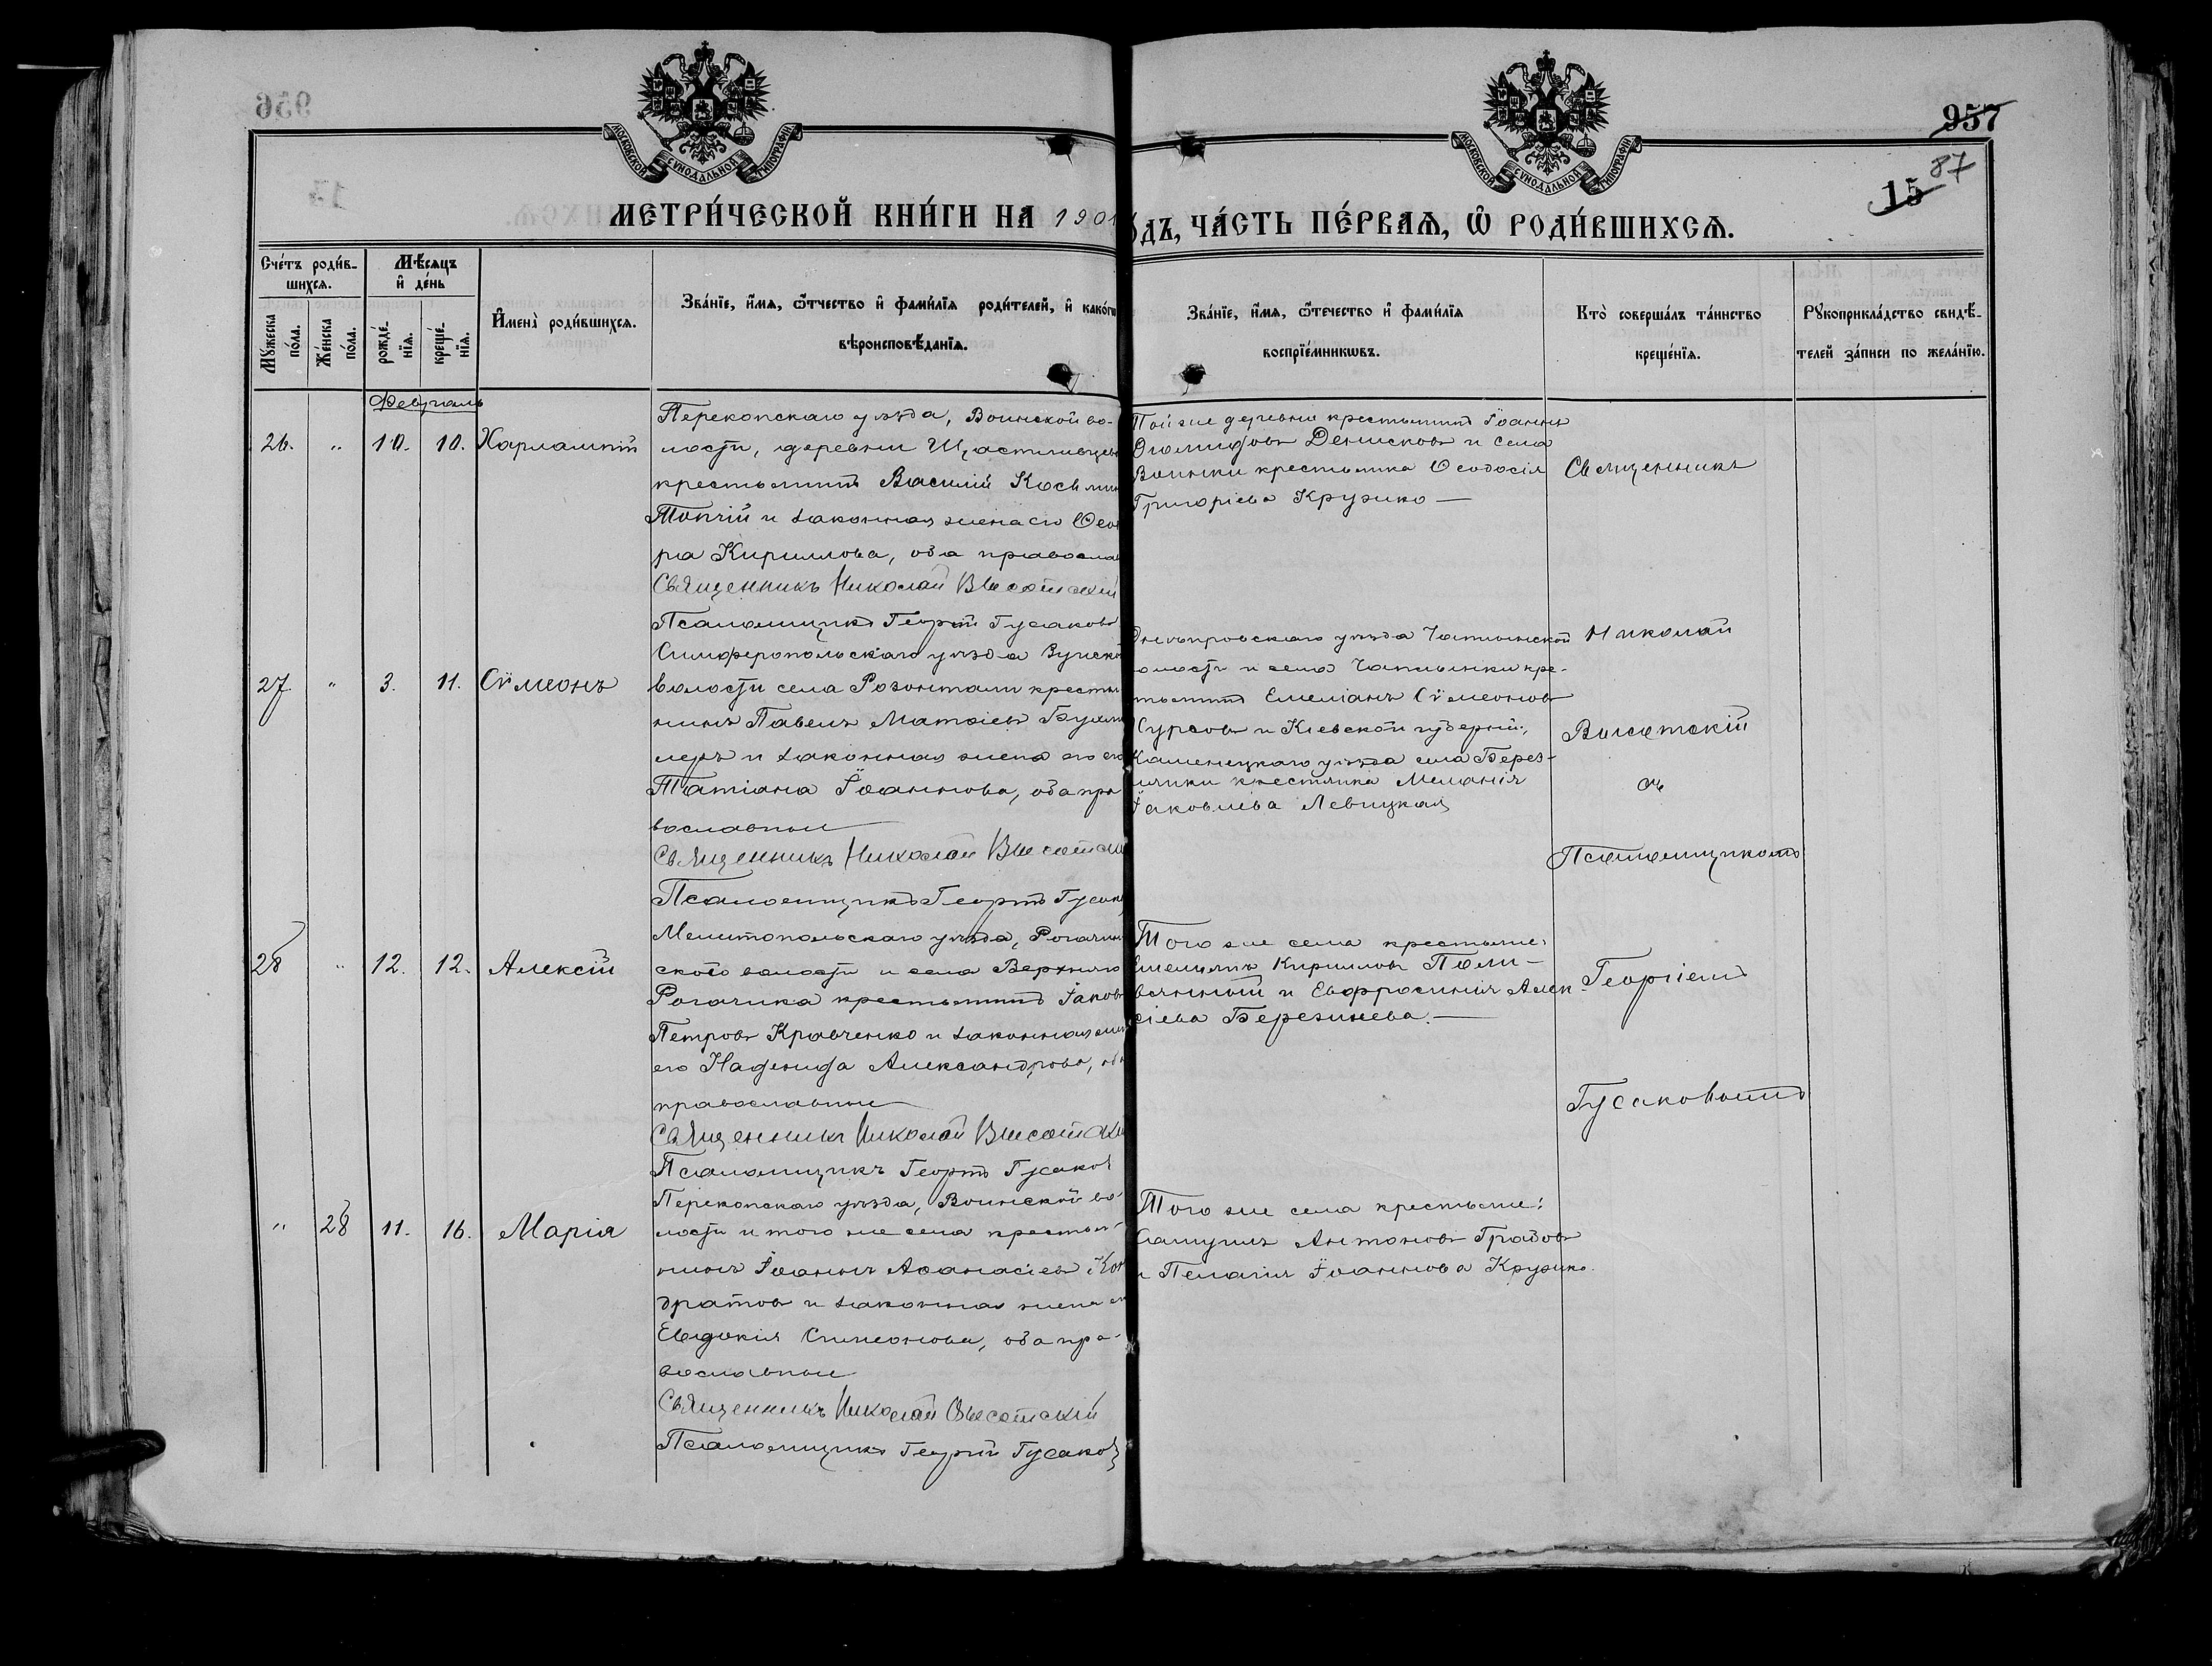 957
87
15
МОСКОВСКОЙ СѴНОДАЛЬНОЙ ТИПОГРАФІИ
МОСКОВСКОЙ СѴНОДАЛЬНОЙ ТИПОГРАФІИ
МЕТРИ́ЧЕСКОЙ КНИ́ГИ НА 1901
ОДЪ, ЧА́СТЬ ПЕ́РВАѦ, Ѡ РОДИ́ВШИХСѦ.
Сче́тъ роди́в-
шихсѧ.
Мѣ́сѧцъ
и҆ де́нь
Мꙋ́жеска
по́ла.
Же́нска
по́ла.
рожде́-
нїѧ.
креще́-
нїѧ.
И҆мена̀ роди́вшихсѧ.
Зва́нїе, и҆́мѧ, ѻ҆́тчество и҆ фами́лїѧ роди́телей, и҆ како́гѡ
вѣроисповѣ́данїѧ.
Зва́нїе, и҆́мѧ, ѻ҆те́чество и҆ фами́лїѧ
воспрїе́мникѡвъ.
Кто̀ соверша́лъ та́инство
креще́нїѧ.
Рꙋкоприкла́дство свидѣ́-
телей за́писи по жела́нїю.
Февраль
26. " 10. 10. Харлампій
Перекопскаго уѣзда, Воинской во-
лости, деревни Щастливцево
крестьянинъ Василій Косьмин
Топчій и законная жена его Ѳеод
ра Кириллова, оба православ
Священникъ Николай Высотскій
Псаломщикъ Георгій Гусаковъ
Той же деревни крестьянинъ Іоаннъ
Денисковъ и села
Воинки крестьянка Ѳеодосія
Григоріева Крузико —
Священникъ
Николай
Высотскій
съ
Псаломщикомъ
Георгіемъ
Гусаковымъ
27 " 3. 11. Сѵмеонъ
Симферопольскаго уѣзда Зуйско
волости села Розенталя крестья
нинъ Павелъ Матѳіевъ
меръ и законная жена его
Татіана Іоаннова, оба пра
вославные
Священникъ Николай Высотскі
Псаломщикъ Георгій Гусако
Днѣпровскаго уѣзда Чаплынской
олости и села Чаплынки кре-
тьянинъ Емеліанъ Сѵмеоновъ
Сурковъ и Кіевской губерніи,
Каменецкаго уѣзда села Берез-
крестьянка Меланія
Іаковлева Левицкая
28 " 12. 12. Алексій
Мелитопольскаго уѣзда, Рогачин
ской волости и села Верхняго
Рогачика крестьянинъ Іаковъ
Петровъ Кравченко и законная жен
его Надежда Александрова, оба
православные
Священникъ Николай Высотскі
Псаломщикъ Георгій Гусаковъ
Того же села крестьяне:
Емельянъ Кирилловъ Поли-
вянный и Евфросинія Алек-
сіева Березинева. —
" 28 11. 16. Марія
Перекопскаго уѣзда, Воинской во-
лости и того же села крестья-
нинъ Іоаннъ Аѳанасіевъ Кон
дратовъ и законная жена ег
Евдокія Симеонова, оба пра-
вославные
Священникъ Николай Высотскій
Псаломщикъ Георгій Гусаковъ
Того же села крестьяне:
Самуилъ Антоновъ Градовъ
и Пелагія Іоаннова Крузико.